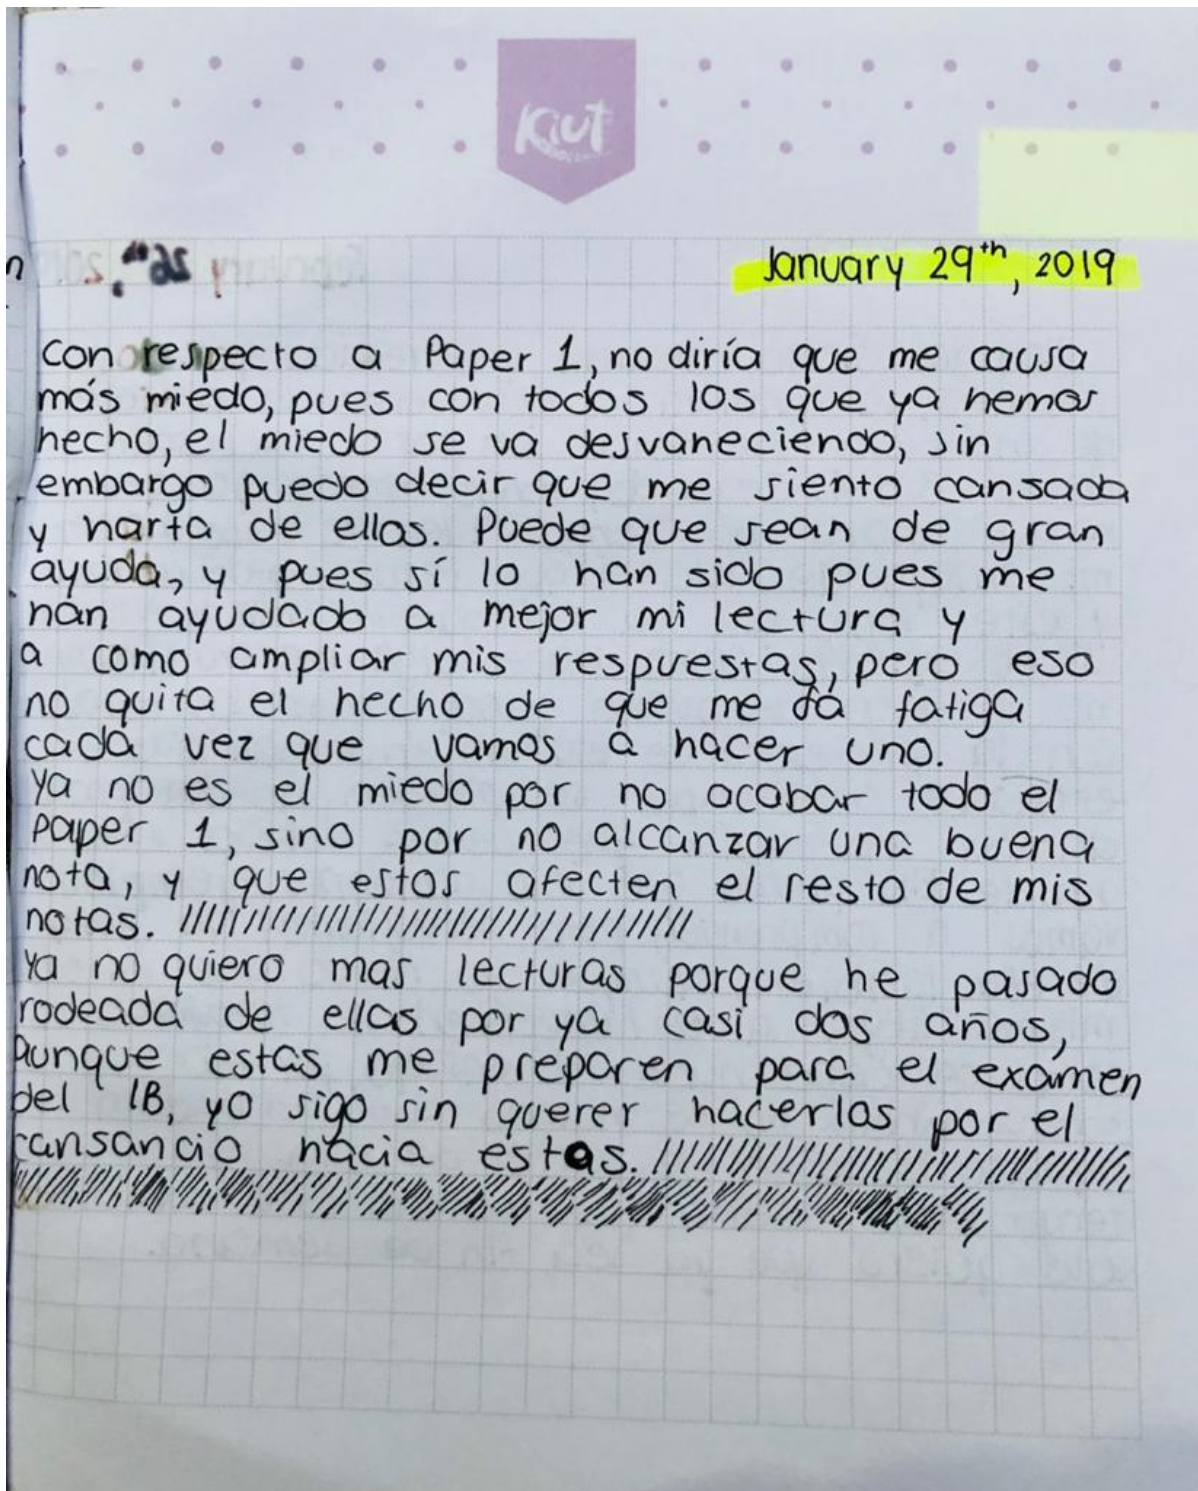 Kiut
January 29th, 2019
Con respecto a Paper 1, no diría que me causa
más miedo, pues con todos los que ya hemos
hecho, el miedo se va desvaneciendo, sin
embargo puedo decir que me siento cansada
y harta de ellos. Puede que sean de gran
ayuda, y pues sí lo han sido pues me
han ayudado a mejor mi lectura y
a como ampliar mis respuestas, pero eso
no quita el hecho de que me da fatiga
cada vez que vamos a hacer uno.
Ya no es el miedo por no acabar todo el
Paper 1, sino por no alcanzar una buena
nota, y que estos afecten el resto de mis
notas.
Ya no quiero mas lecturas porque he pasado
rodeada de ellas por ya casi dos años,
Aunque estas me preparen para el examen
del IB, yo sigo sin querer hacerlos por el
cansancio hacia estas.